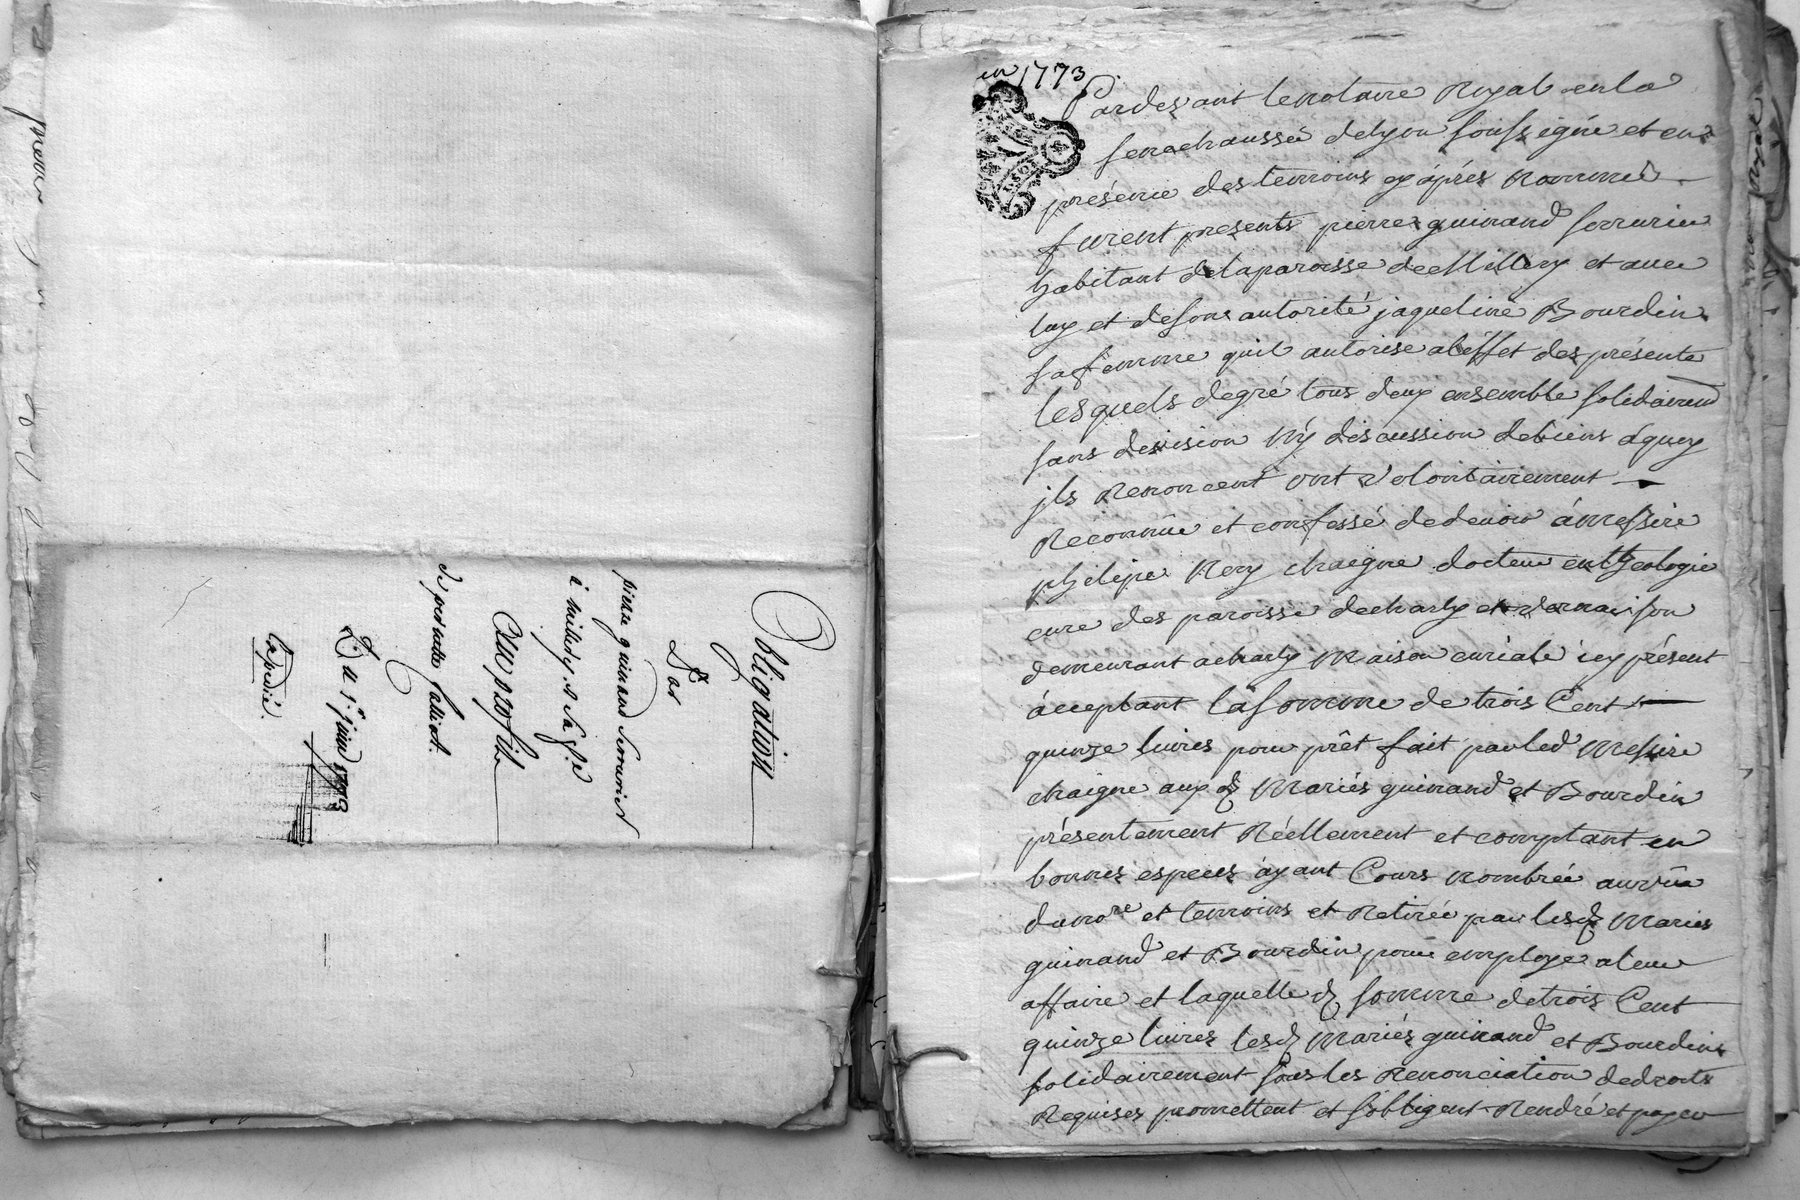 Obligation
Par
pierre guinand serrurier
à millery et sa f.e
Du 1.er juin 1773
Expedié.
juin 1773
Pardevant le notaire Royal en la
senechaussée de Lyon soussigné et en
présence des temoins cy après nommés
furent presents pierre guinand serrurier
habitant de la paroisse de Millery et avec
luy et de son autorité jaqueline Bourdin
sa femme quil autorise a l'éffet des présente
lesquels de gré tous deux ensemble solidairemt
sans division ny discussion de biens áquoy
jls Renoncent ont volontairement
Reconnüe et confessé de devoir á messire
philipe Nery chaigne docteur en theologie
cure des paroisse de charly et vernaison
demeurant a charly Maison curiale icy présent
ácceptant la somme de trois Cent
quinze livres pour prêt fait par led messire
chaigne aux d Mariés guinand et Bourdin
présentement Réellement et comptant en
bonnes especes áyant Cours nombrée au vüe
du no.re et temoins et Retirée par lesd Mariés
guinand et Bourdin pour employer a leur
affaire et laquelle d somme de trois Cent
quinze livres lesd Mariés guinand et Bourdin
solidairement sous les Renonciation de droits
Requises promettent et sobligent Rendré et payer